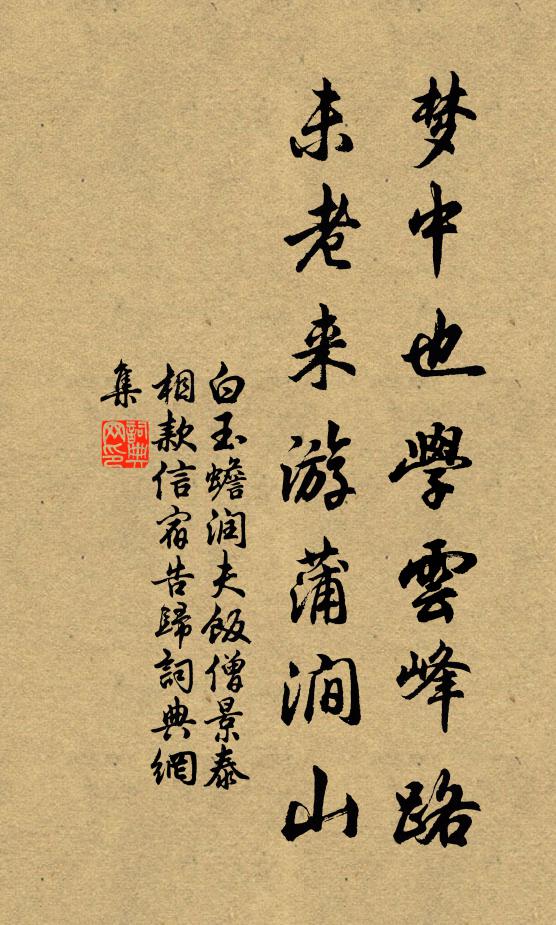 梦中也學雲峰路
未老来游蒲涧山
白玉蟾润夫飯僧景泰
相款信宿告歸詞典網
集
詞典网印